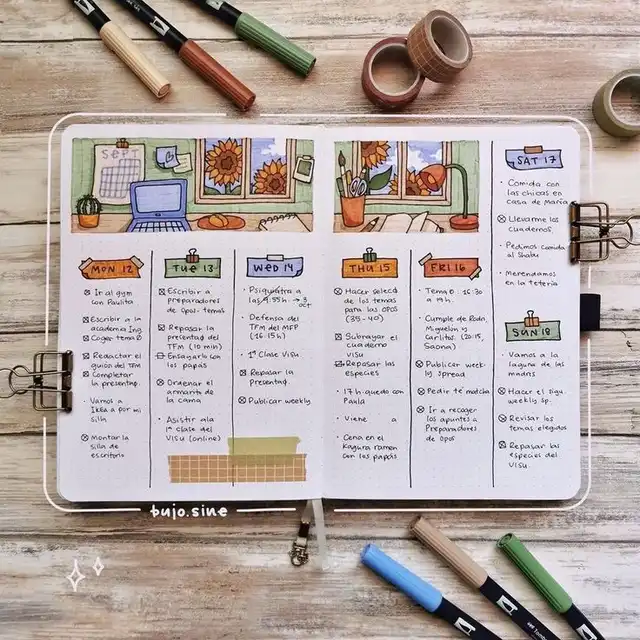 SEP
MON 12
Ir al gym
con Paulita
Escribir a la
academia Ing.
Coger tema
Redactar el
guion del TFM
Completar
la present.
Vamos a
Ikea a por mi
silla
Montar la
silla de
escritorio
TUE 13
Escribir a
preparadores
de opos. temas
Repasar la
presentad. del
TFM (10 min)
Ensayarlo con
los papas
Ordenar el
armario de
la cama
Asistir a la
1ª clase del
Visu (online)
WED 14
Psiquiatra a
las 9:55h → 3
oct
Defensa del
TFM del MFP
(16:15h)
1ª Clase Visu
Repasar la
presentad.
Publicar weekly
THU 15
Hacer selecd
de los temas
para las opos
(35-40)
Subrayar el
cuaderno
visu
Repasar las
especies
17h quedo con
Paula
Viene a
Cena en el
Kagura ramen
con los papás
FRI 16
Tema 0: 16:30
a 19h.
Cumple de Rodri,
Miguelon y
Carlitos. (20:15,
Saona)
Publicar week-
ly spread
Pedir té matcha
Ir a recoger
los apuntes a
Preparadores
de Opos
SAT 17
Comida con
las chicas en
casa de María
Llevarme los
cuadernos.
Pedimos comida
al Shabu
Merendamos
en la tetería
SUN 18
Vamos a la
laguna de las
madres
Hacer el sigu.
weekly sp.
Revisar los
temas elegidos
Repasar las
especies del
visu.
bujo.sine